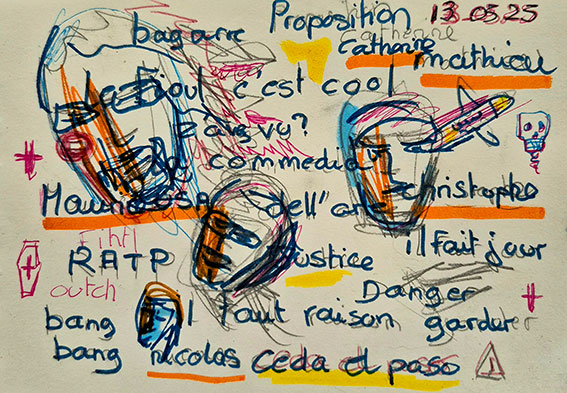 Proposition 13.05.25
bagarre Catherine mathieu
c'est cool
commedia
dell'arte christophe
Fiht
RATP Justice il fait jour
outch Danger
bang il faut raison garder
bang nicolas ceda el paso